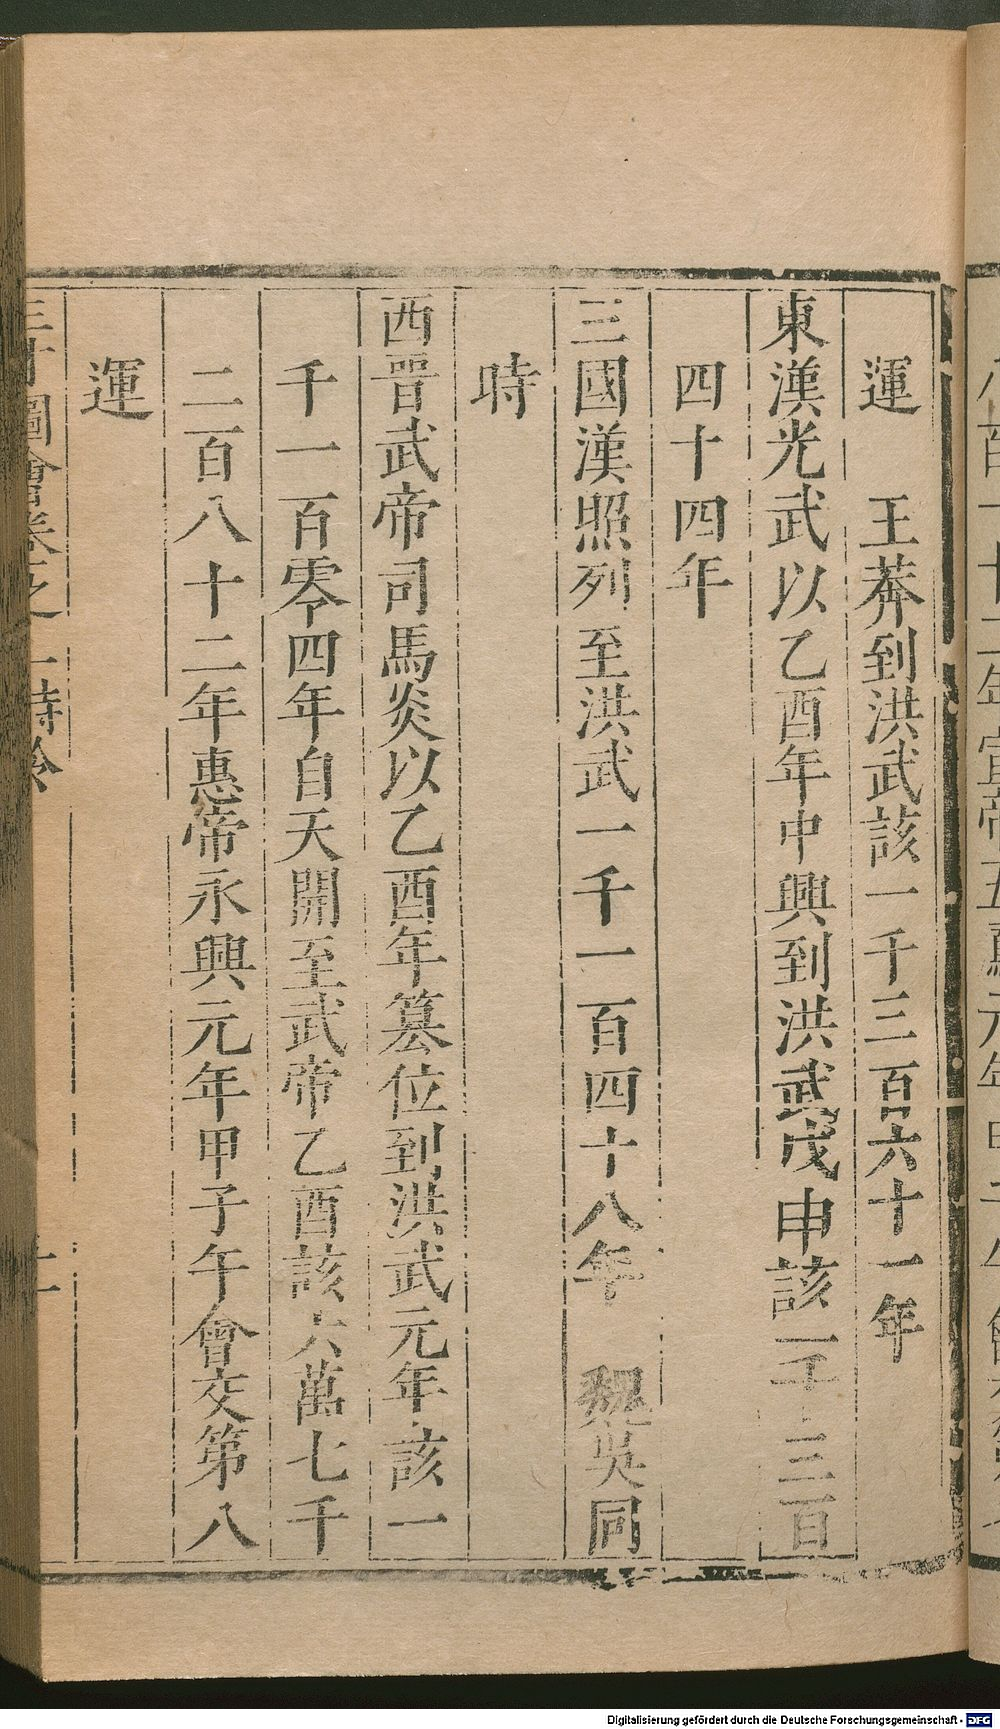 運　王莽到洪武該一千三百六十一年
東漢光武以乙酉年中興到洪武戊申該一千三百
四十四年
三國漢照列至洪武一千一百四十八年　魏吳同
時
西晋武帝司馬炎以乙酉年篡位到洪武元年該一
千一百零四年自天開至武帝乙酉該六萬七千
二百八十二年惠帝永興元年甲子午會交第八
運
三才圖會卷之一時令
Digitalisierung gefördert durch die Deutsche Forschungsgemeinschaft - DFG